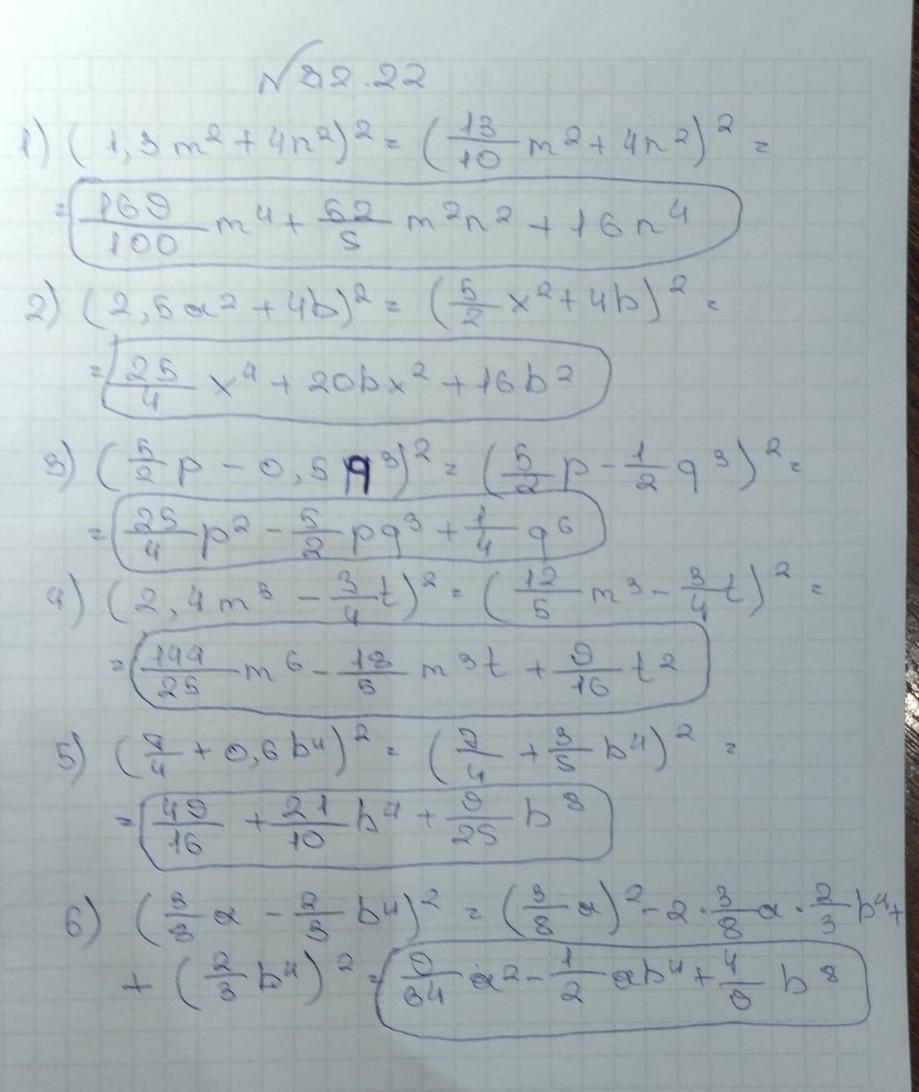 √32.22
1) (1,3m²+4n²)² = (13/10 m²+4n²)² =
= 169/100 m⁴ + 52/5 m²n² + 16n⁴
2) (2,5a²+4b)² = (5/2 x²+4b)² =
= 25/4 x⁴ + 20bx² + 16b²
3) (5/2 p - 0,5q³)² = (5/2 p - 1/2 q³)² =
= 25/4 p² - 5/2 pq³ + 1/4 q⁶
4) (2,4m³ - 3/4 t)² = (12/5 m³ - 3/4 t)² =
= 144/25 m⁶ - 18/5 m³t + 9/16 t²
5) (7/4 + 0,6b⁴)² = (7/4 + 3/5 b⁴)² =
= 49/16 + 21/10 b⁴ + 9/25 b⁸
6) (3/8 a - 2/3 b⁴)² = (3/8 a)² - 2·3/8 a·2/3 b⁴ +
+ (2/3 b⁴)² = 9/64 a² - 1/2 ab⁴ + 4/9 b⁸